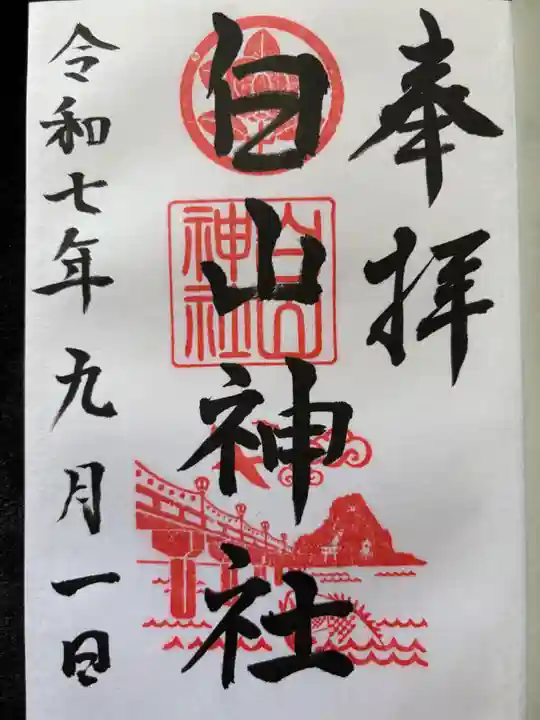 奉拝
白山神社
白山神社
令和七年九月一日